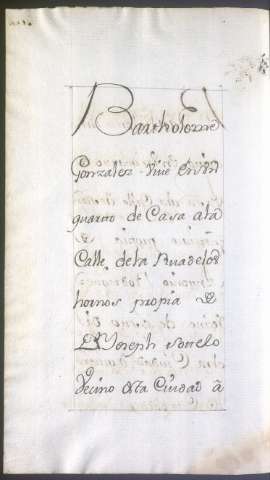 Bartholome
Gonzalez vive en Un
quarto de Casa a la
Calle de la Rua de los
hornos propia de
Dn Joseph
Vecino desta Ciudad a